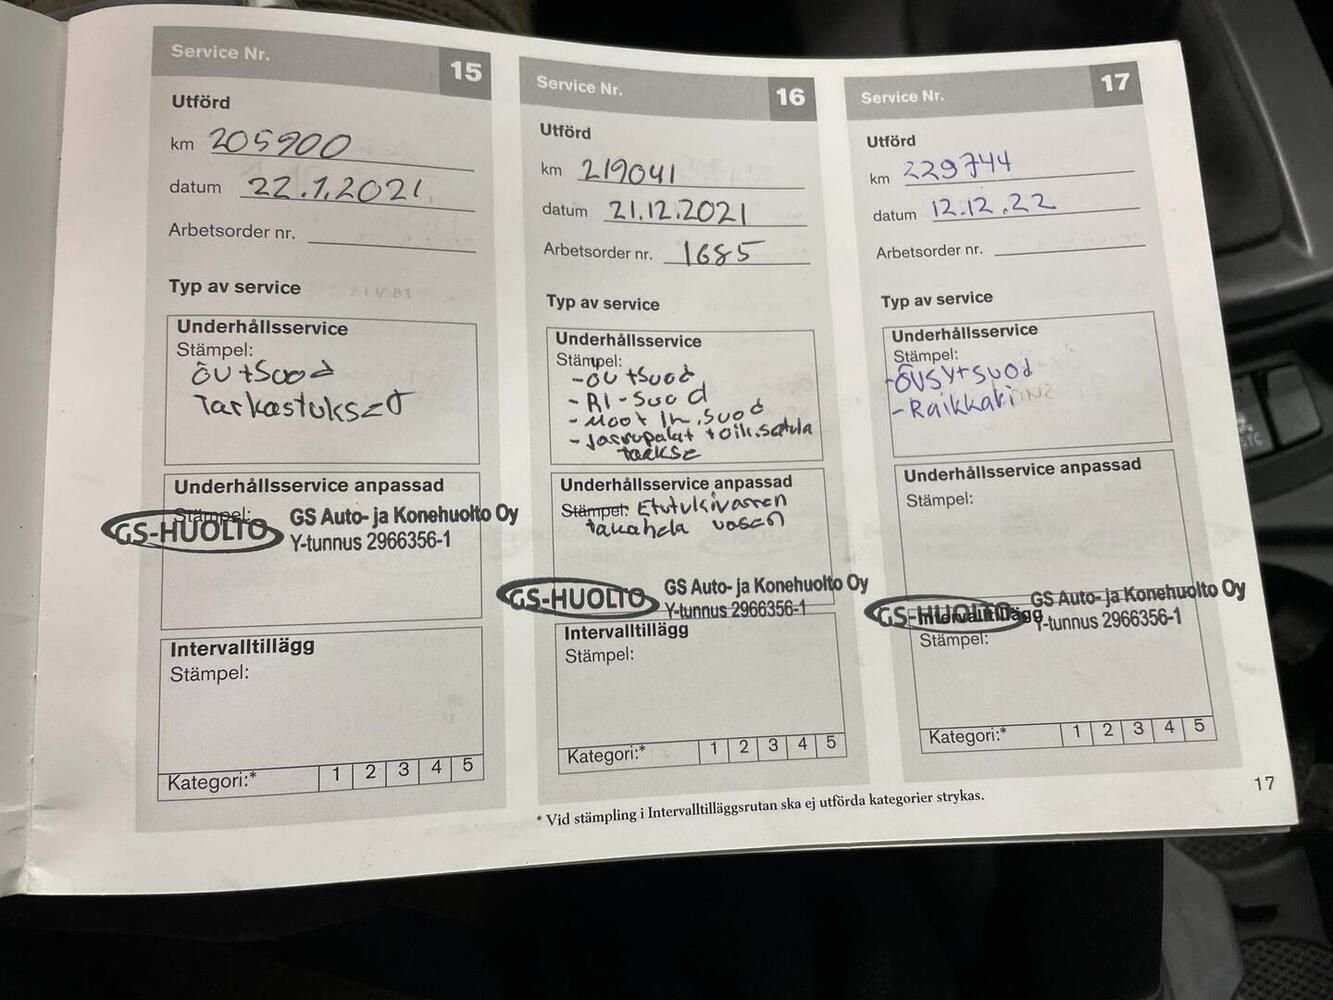 Service Nr. 15
Utförd
km 205900
datum 22.1.2021
Arbetsorder nr.
Typ av service
Underhållsservice
Stämpel:
ÖV+Suod
Tarkastukset
Underhållsservice anpassad
Stämpel:
GS-HUOLTO GS Auto- ja Konehuolto Oy
Y-tunnus 2966356-1
Intervalltillägg
Stämpel:
Kategori:* 1 2 3 4 5
Service Nr. 16
Utförd
km 219041
datum 21.12.2021
Arbetsorder nr. 1685
Typ av service
Underhållsservice
Stämpel:
-ÖV +Suod
- RI-Suod
- Moot In.Suod
- Jarrupalat + öilk.satula
taakse
Underhållsservice anpassad
Stämpel: Etutukivarren
takahela vasen
GS-HUOLTO GS Auto- ja Konehuolto Oy
Y-tunnus 2966356-1
Intervalltillägg
Stämpel:
Kategori:* 1 2 3 4 5
Service Nr. 17
Utförd
km 229744
datum 12.12.22
Arbetsorder nr.
Typ av service
Underhållsservice
Stämpel:
- Raikkaki
Underhållsservice anpassad
Stämpel:
GS-HUOLTO GS Auto- ja Konehuolto Oy
Intervalltillägg Y-tunnus 2966356-1
Stämpel:
Kategori:* 1 2 3 4 5
* Vid stämpling i Intervalltilläggsrutan ska ej utförda kategorier strykas.
17